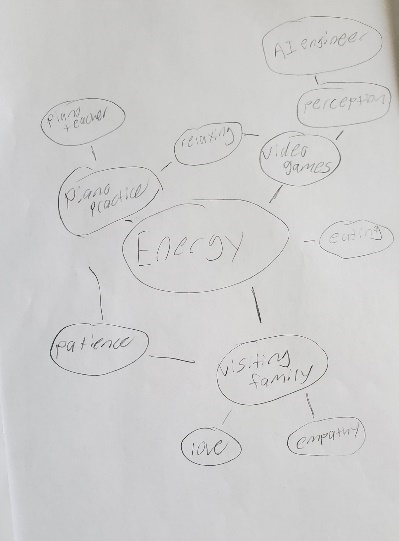 AI engineer
perception
piano
teacher
relaxing
video
games
piano
practice
Energy
eating
patience
visiting
family
love
empathy